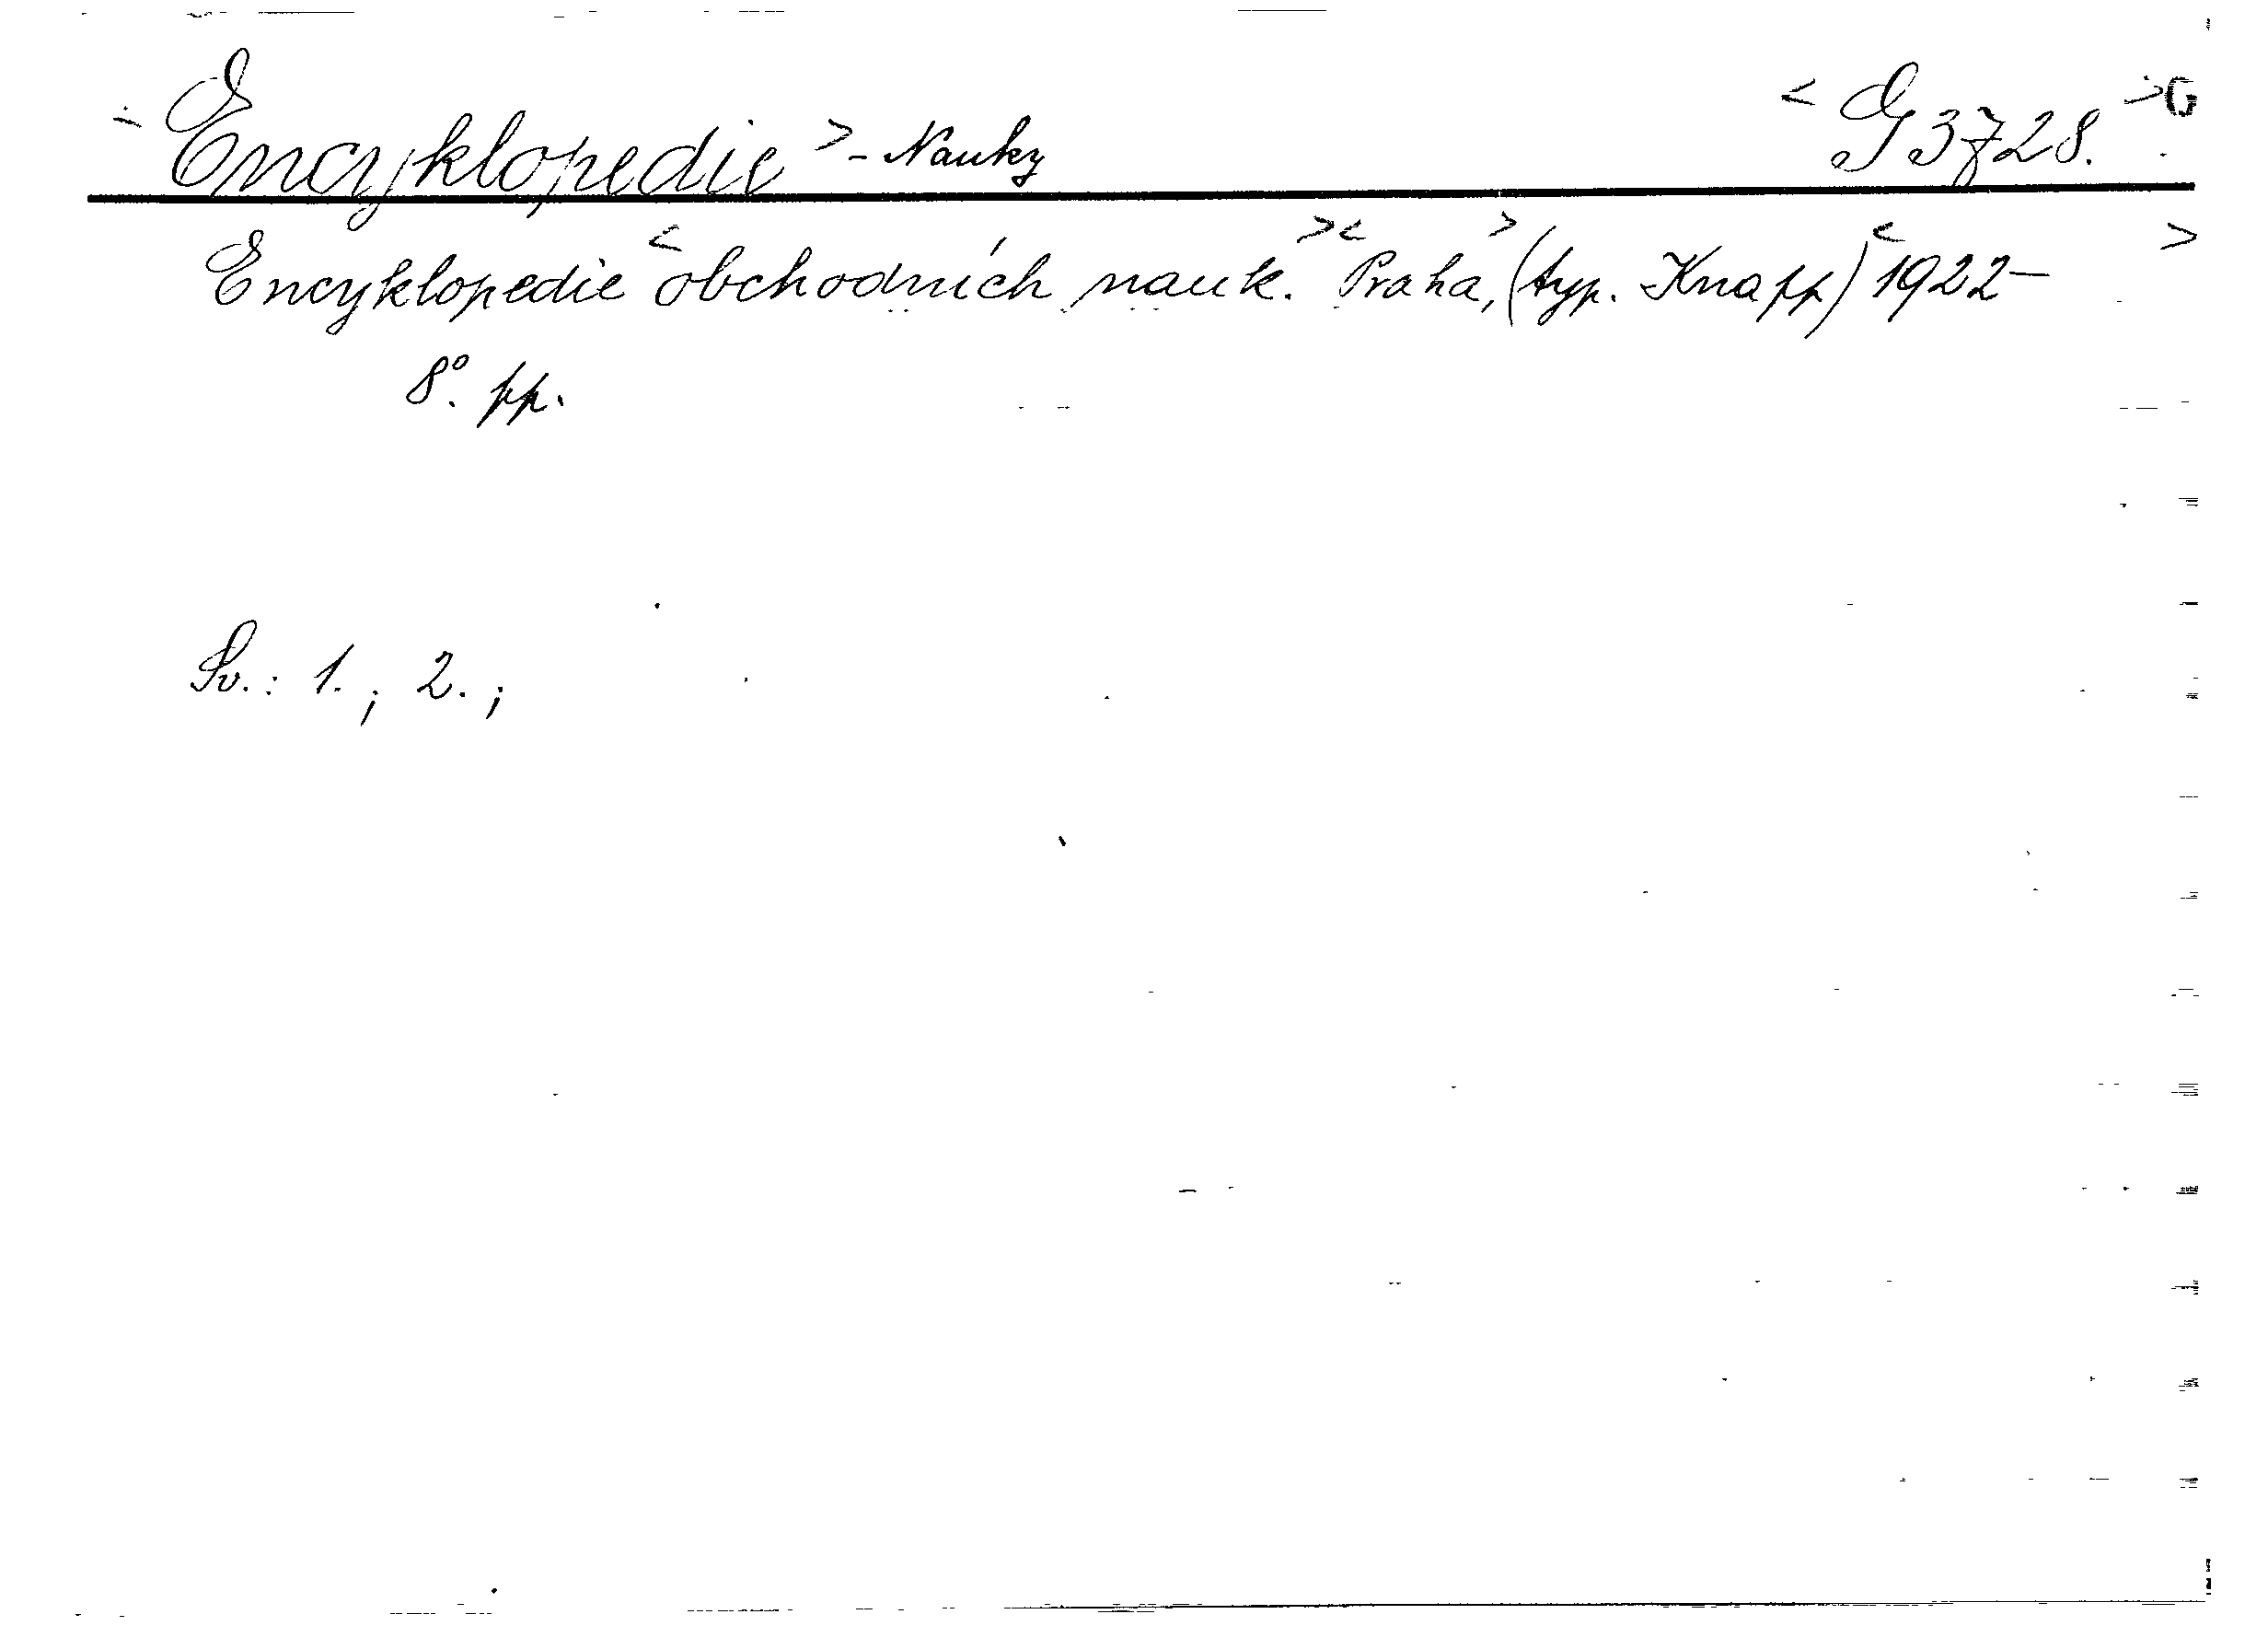 < Encyklopedie > - Nauky < G 3728. > G
Encyklopedie < obchodních nauk. > < Praha, > (typ. Knapp) < 1922— >
8°. pp.
Sv.: 1.; 2.;